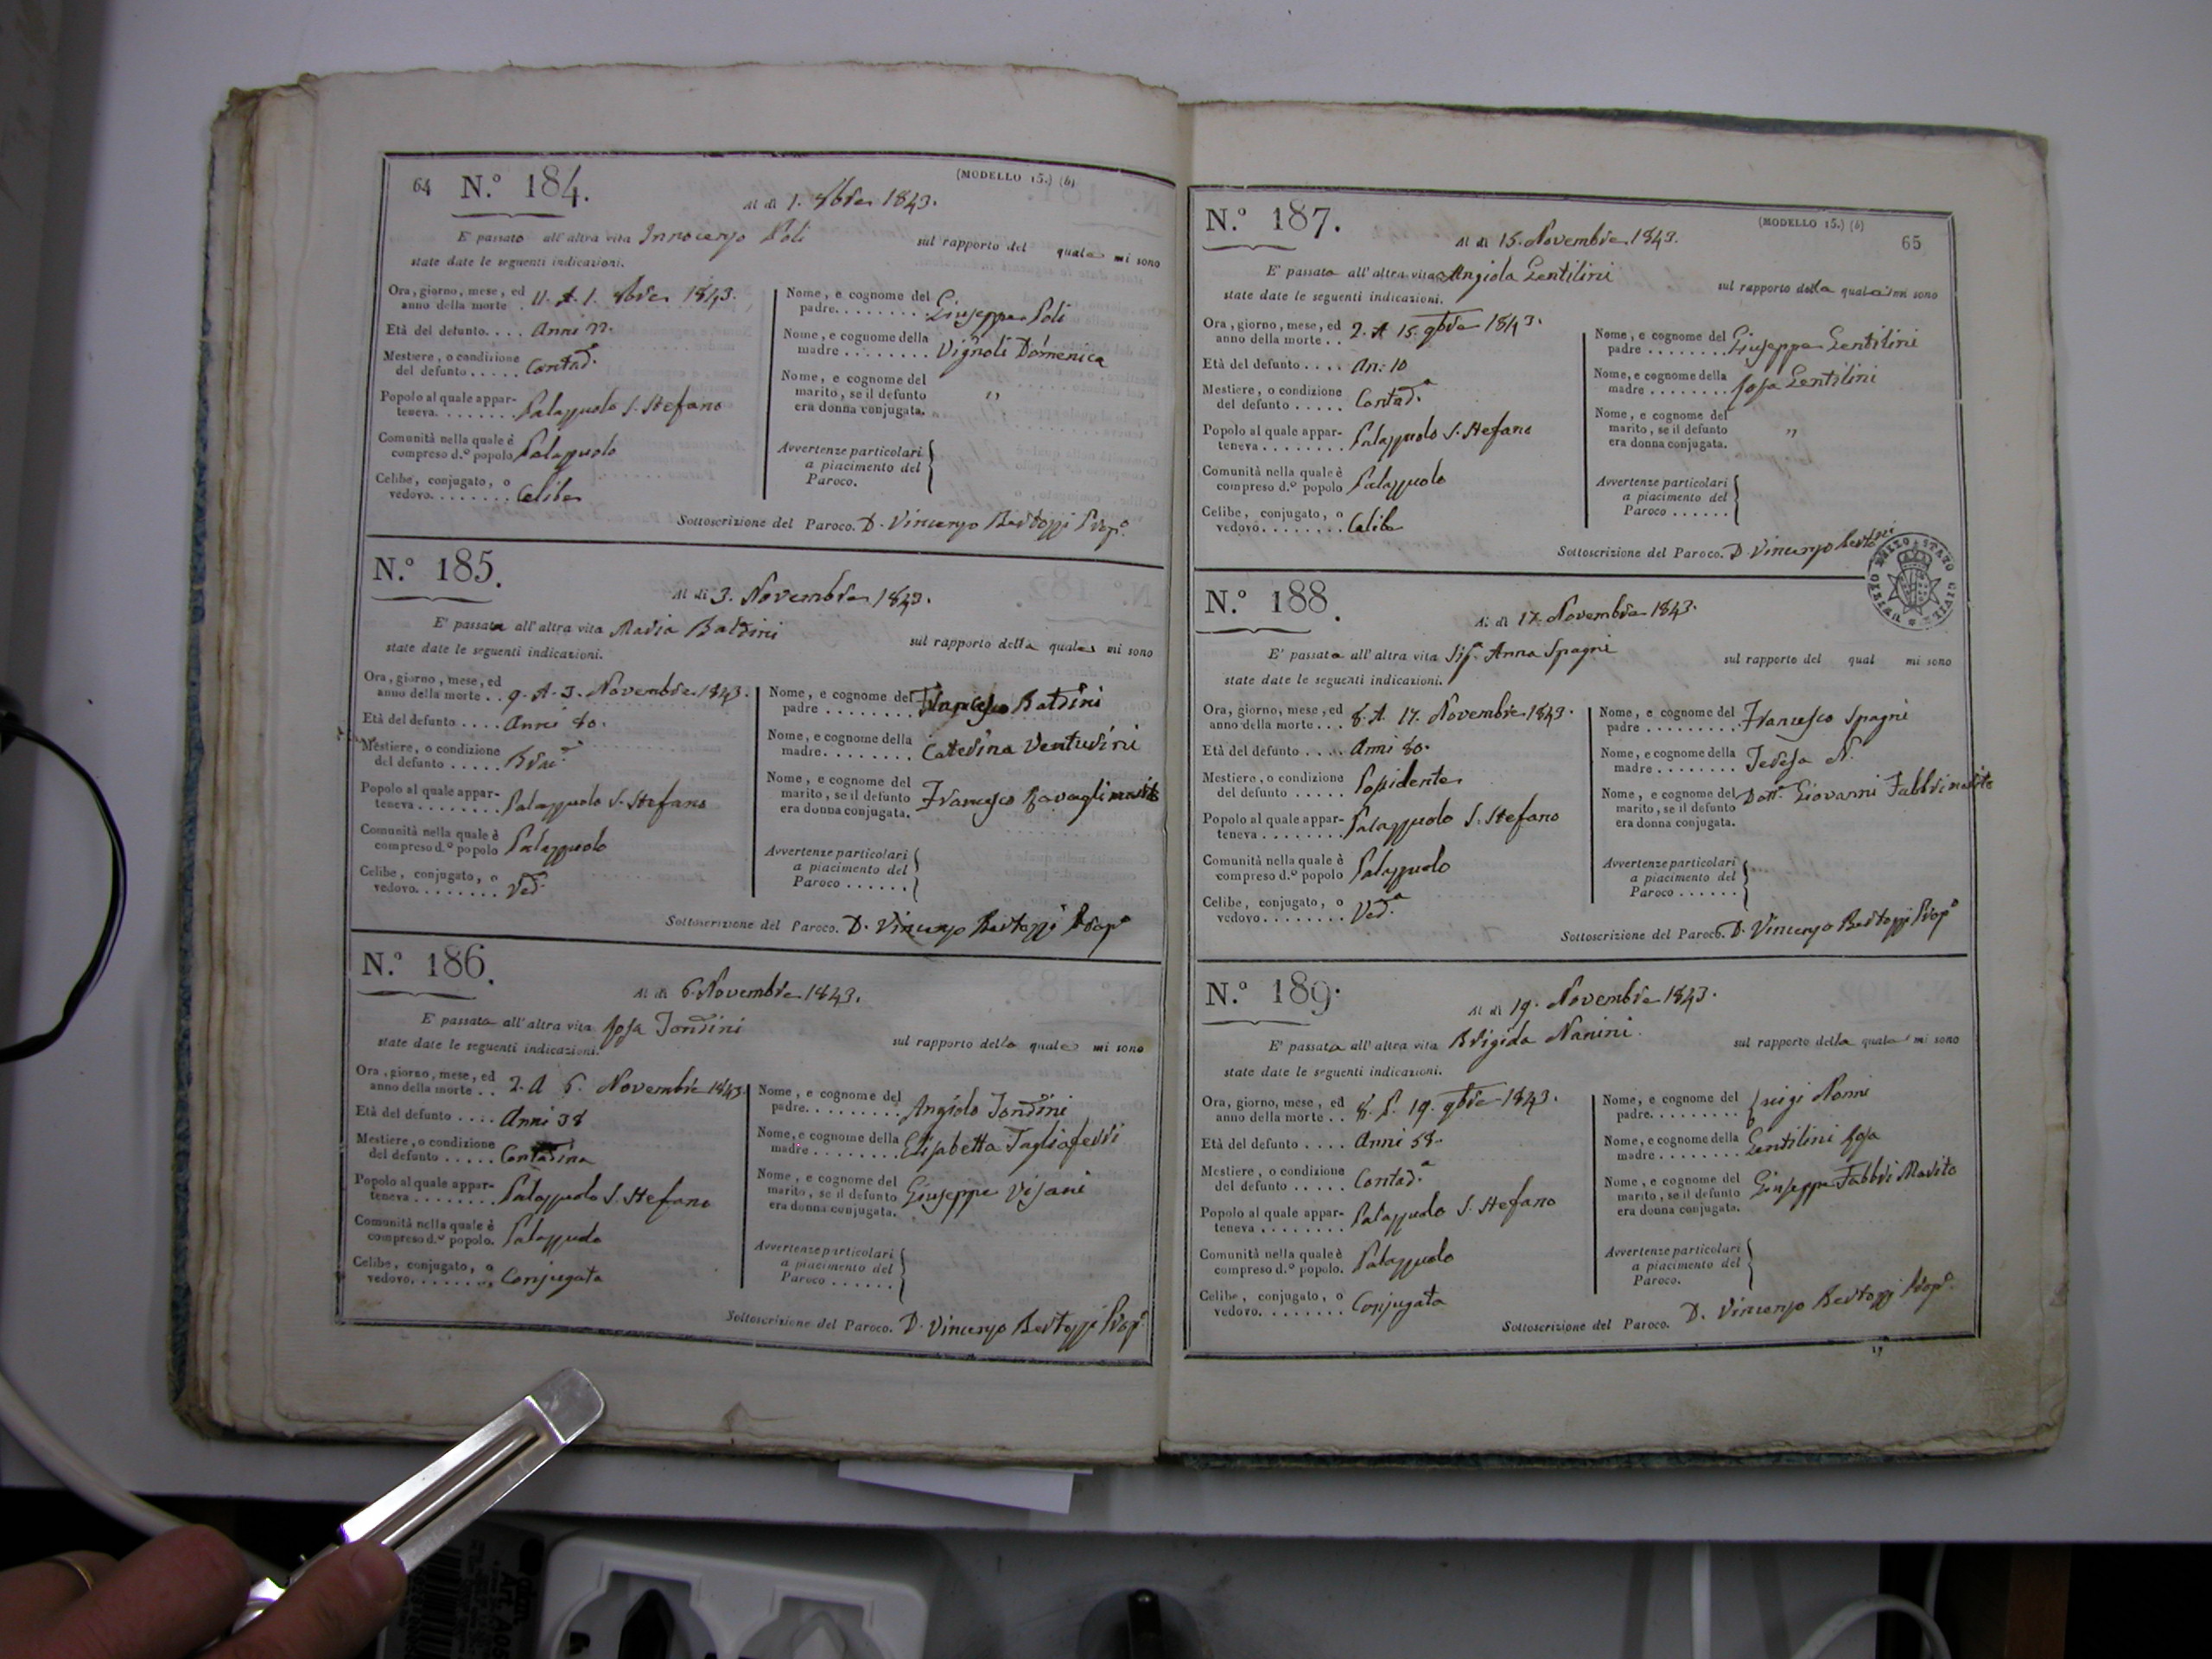 64 N.º 184. (MODELLO 15.) (6)
Al dì 1. 9bre 1843.
E' passato all'altra vita Innocenzo Poli sul rapporto del quale mi sono
state date le seguenti indicazioni.
Ora, giorno, mese, ed
anno della morte . 11. A. 1. 9bre 1843.
Età del defunto. . . . Anni
Mestiere, o condizione
del defunto . . . . . Contad.
Popolo al quale appar-
teneva. . . . . . . . Palazzuolo S. Stefano
Comunità nella quale è
compreso d.º popolo Palazzuolo
Celibe, conjugato, o
vedovo. . . . . . . . Celibe
Nome, e cognome del
padre. . . . . . . . Giuseppe Poli
Nome, e cognome della
madre . . . . . . . . Vignoli Domenica
Nome, e cognome del
marito, se il defunto „
era donna conjugata.
Avvertenze particolari
a piacimento del
Paroco.
Sottoscrizione del Paroco. D. Vincenzo Bertozzi Prop.º
N.º 185.
Al dì 3. Novembre 1843.
E' passata all'altra vita Maria Baldini sul rapporto della quale mi sono
state date le seguenti indicazioni.
Ora, giorno, mese, ed
anno della morte . . 9. A. 3. Novembre 1843.
Età del defunto . . . . Anni 80.
Mestiere, o condizione
del defunto . . . . .
Popolo al quale appar-
teneva . . . . . . . . Palazzuolo S. Stefano
Comunità nella quale è
compreso d.º popolo Palazzuolo
Celibe, conjugato, o
vedovo. . . . . . . . Ved.
Nome, e cognome del
padre . . . . . . . . Francesco Baldini
Nome, e cognome della
madre. . . . . . . . Caterina Venturini
Nome, e cognome del
marito, se il defunto Francesco marito
era donna conjugata.
Avvertenze particolari
a piacimento del
Paroco . . . . . .
Sottoscrizione del Paroco. D. Vincenzo Bertozzi Prop.º
N.º 186.
Al dì 6. Novembre 1843.
E' passata all'altra vita Rosa Tondini sul rapporto della quale mi sono
state date le seguenti indicazioni.
Ora, giorno, mese, ed
anno della morte . . 2. A 6. Novembre 1843.
Età del defunto . . . . Anni 38
Mestiere, o condizione
del defunto . . . . . Contadina
Popolo al quale appar-
teneva . . . . . . . . Palazzuolo S. Stefano
Comunità nella quale è
compreso d.º popolo. Palazzuolo
Celibe, conjugato, o
vedovo. . . . . . . . Conjugata
Nome, e cognome del
padre. . . . . . . . . Angiolo Tondini
Nome, e cognome della
madre . . . . . . . . Elisabetta Tagliaferri
Nome, e cognome del
marito, se il defunto Giuseppe Visani
era donna conjugata.
Avvertenze particolari
a piacimento del
Paroco . . . . . .
Sottoscrizione del Paroco. D. Vincenzo Bertozzi Prop.º
N.º 187. (MODELLO 15.) (6) 65
Al dì 15. Novembre 1843.
E' passata all'altra vita Angiola Gentilini sul rapporto della quale mi sono
state date le seguenti indicazioni.
Ora, giorno, mese, ed
anno della morte . . 2. A 15. 9bre 1843.
Età del defunto . . . . An: 10
Mestiere, o condizione
del defunto . . . . . Contad.ª
Popolo al quale appar-
teneva . . . . . . . . Palazzuolo S. Stefano
Comunità nella quale è
compreso d.º popolo Palazzuolo
Celibe, conjugato, o
vedovo. . . . . . . . Celibe
Nome, e cognome del
padre . . . . . . . . Giuseppe Gentilini
Nome, e cognome della
madre . . . . . . . . Rosa Gentilini
Nome, e cognome del
marito, se il defunto „
era donna conjugata.
Avvertenze particolari
a piacimento del
Paroco . . . . . .
Sottoscrizione del Paroco. D. Vincenzo Bertozzi
ARCHIVIO DELLO STATO CIVILE
N.º 188.
Al dì 17. Novembre 1843.
E' passata all'altra vita Sigª. Anna Spagni sul rapporto del qual mi sono
state date le seguenti indicazioni.
Ora, giorno, mese, ed
anno della morte . . . 8. A. 17. Novembre 1843.
Età del defunto . . . . . Anni 80.
Mestiere, o condizione
del defunto . . . . . Possidente
Popolo al quale appar-
teneva . . . . . . . . Palazzuolo S. Stefano
Comunità nella quale è
compreso d.º popolo Palazzuolo
Celibe, conjugato, o
vedovo. . . . . . . . Ved.ª
Nome, e cognome del
padre . . . . . . . . . Francesco Spagni
Nome, e cognome della
madre . . . . . . . . Teresa N.
Nome, e cognome del
marito, se il defunto Dott. Giovanni Fabbri marito
era donna conjugata.
Avvertenze particolari
a piacimento del
Paroco . . . . . .
Sottoscrizione del Paroco. D. Vincenzo Bertozzi Prop.º
N.º 189.
Al dì 19. Novembre 1843.
E' passata all'altra vita Brigida Nanini. sul rapporto della quale mi sono
state date le seguenti indicazioni.
Ora, giorno, mese, ed
anno della morte . . 8. P. 19. 9bre 1843.
Età del defunto . . . . Anni 58.
Mestiere, o condizione
del defunto . . . . . Contad.ª
Popolo al quale appar-
teneva . . . . . . . . Palazzuolo S. Stefano
Comunità nella quale è
compreso d.º popolo. Palazzuolo
Celibe, conjugato, o
vedovo. . . . . . . . Conjugata
Nome, e cognome del
padre. . . . . . . . . Luigi Nanni
Nome, e cognome della
madre . . . . . . . . Gentilini Rosa
Nome, e cognome del
marito, se il defunto Giuseppe Fabbri Marito
era donna conjugata.
Avvertenze particolari
a piacimento del
Paroco.
Sottoscrizione del Paroco. D. Vincenzo Bertozzi Prop.º
17